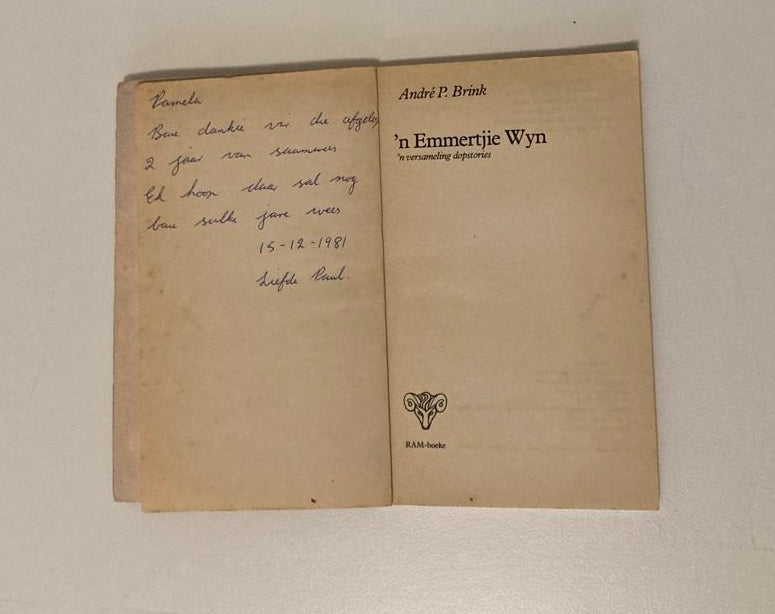 Pamela
Baie dankie vir die afgelope
2 jaar van saamwees
Ek hoop daar sal nog
baie sulke jare wees
15-12-1981
Liefde Paul.
André P. Brink
'n Emmertjie Wyn
'n versameling dopstories
RAM-boeke